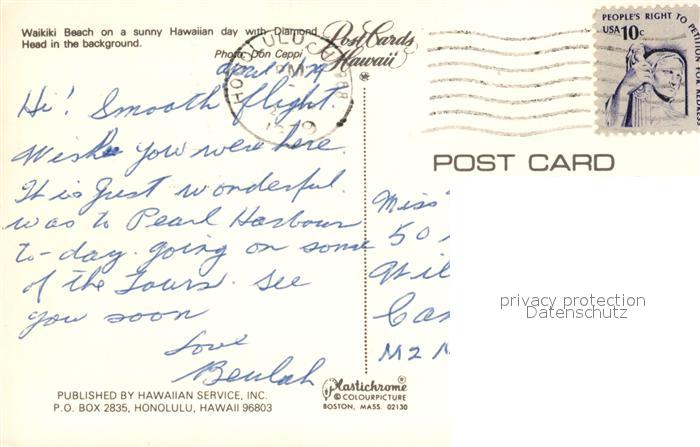 Waikiki Beach on a sunny Hawaiian day with Diamond
Head in the background.
Photo: Don Ceppi
Post Cards
Hawaii
PEOPLE'S RIGHT TO PETITION FOR REDRESS
USA 10c
HONOLULU
PM
1979
April /79
Hi! Smooth flight.
Wish you were here.
It is just wonderful.
was to Pearl Harbour
to-day. going on some
of the Tours. See
you soon
Love
Beulah
POST CARD
Miss
50
Wil
Can
M2
privacy protection
Datenschutz
PUBLISHED BY HAWAIIAN SERVICE, INC.
P.O. BOX 2835, HONOLULU, HAWAII 96803
Plastichrome®
© COLOURPICTURE
BOSTON, MASS. 02130